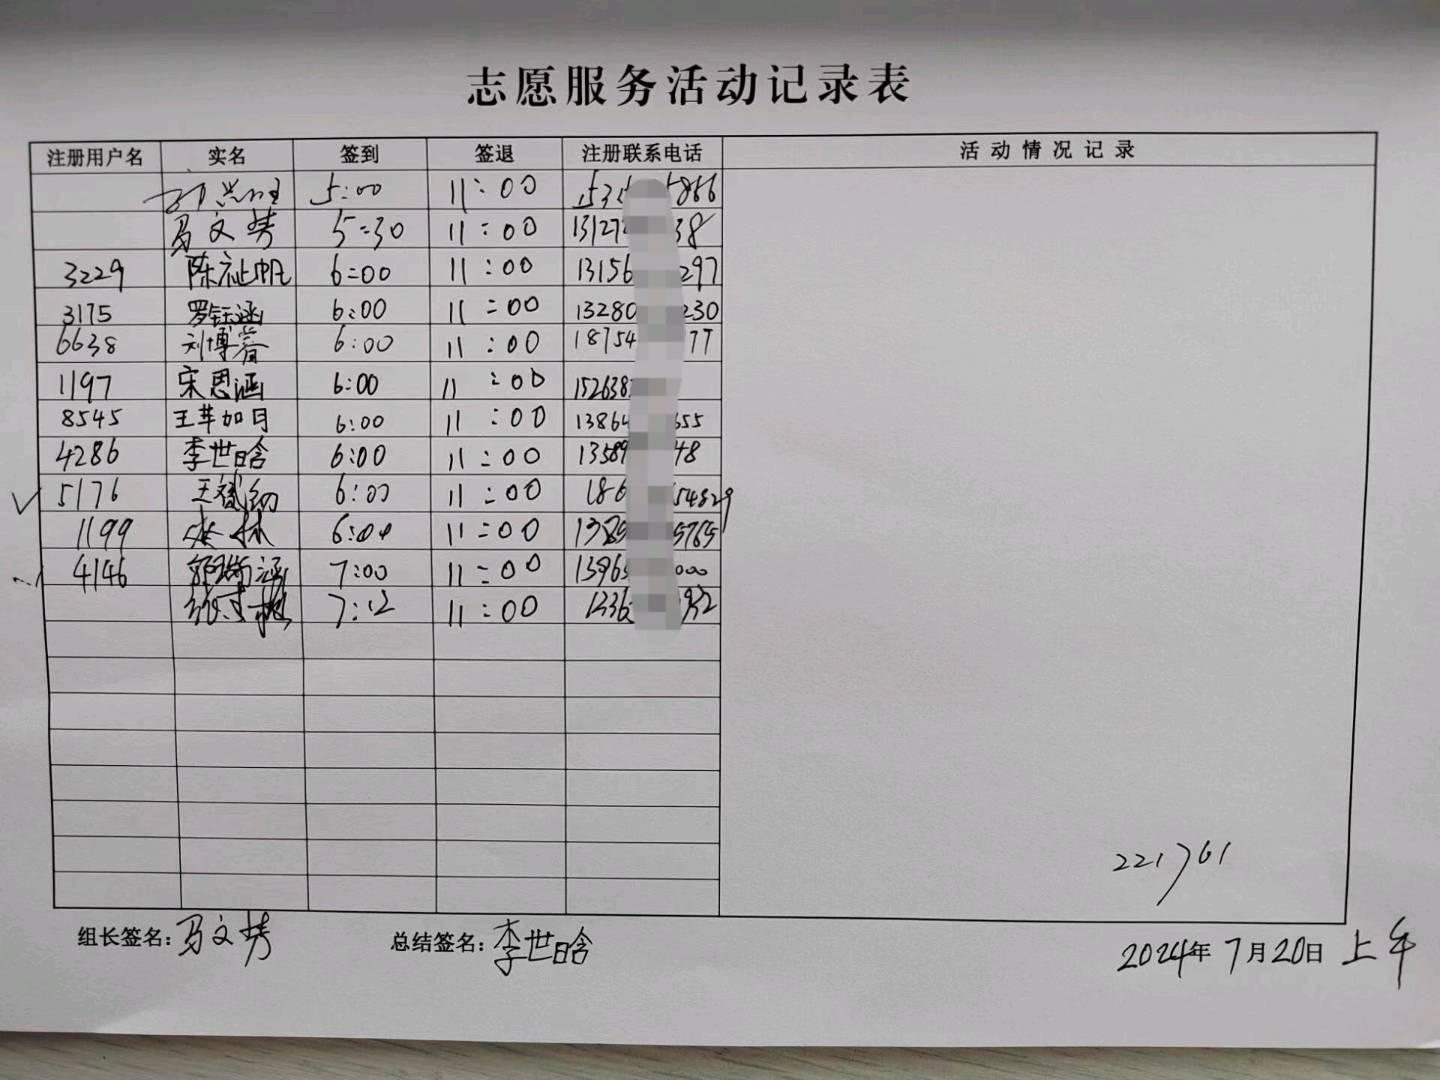 志愿服务活动记录表
注册用户名 实名 签到 签退 注册联系电话 活动情况记录
5:00 11:00 5866
马文梦 5:30 11:00 13127 38
3229 陈祉帆 6:00 11:00 13156 297
3175 罗钰涵 6:00 11:00 13280 230
6638 刘博睿 6:00 11:00 18754 77
1197 宋思涵 6:00 11:00 152638
8545 王芊如月 6:00 11:00 1386 655
4286 李世晗 6:00 11:00 13589 48
✓ 5176 王 6:00 11:00 186 54829
1199 6:00 11:00 5765
4146 郭瑞涵 7:00 11:00 1396 000
7:12 11:00 1336
221761
组长签名: 马文梦 总结签名: 李世晗 2024年7月20日 上午